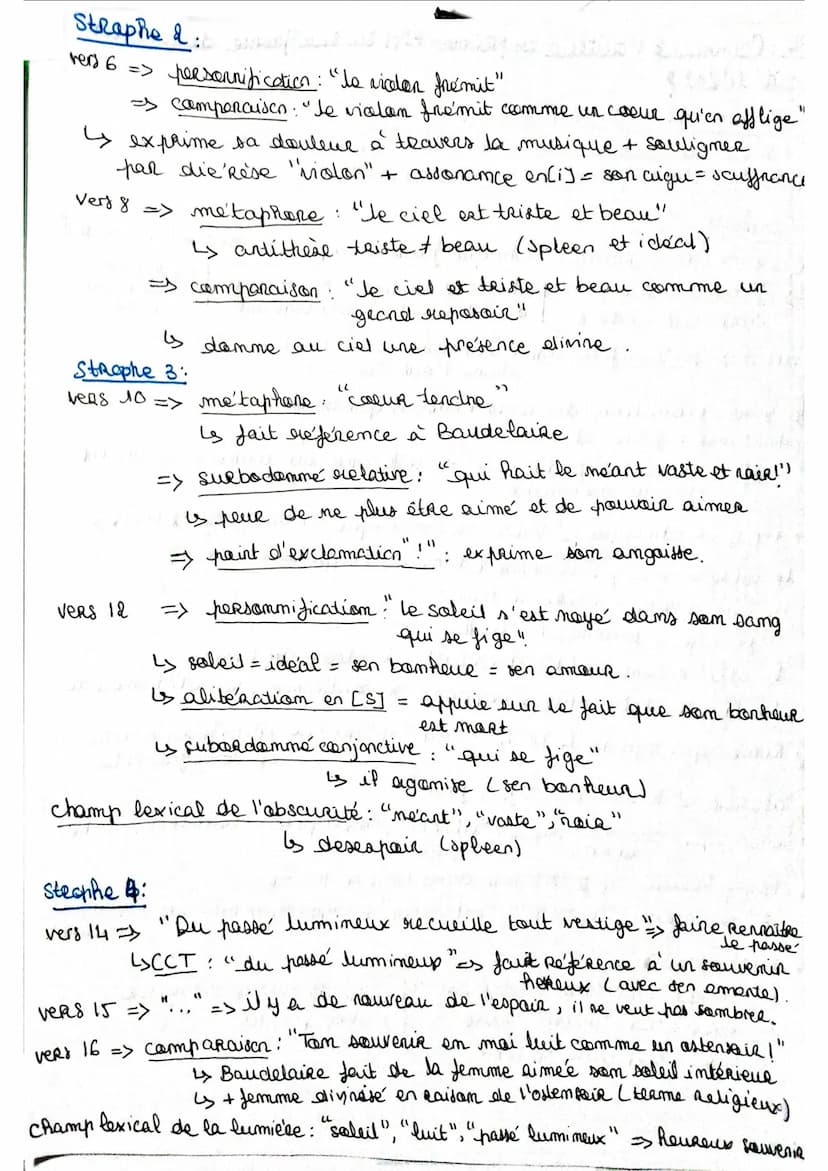 Strophe 2 :
vers 6 => personnification : "le violon frémit"
=> comparaison : "le violon frémit comme un coeur qu'on afflige"
↳ exprime sa douleur à travers la musique + souligner
par diérèse "violon" + assonance en [i] = son aigu = souffrance
Vers 8 => métaphore : "le ciel est triste et beau"
↳ antithèse triste ≠ beau (spleen et idéal)
=> comparaison : "le ciel est triste et beau comme un
grand reposoir"
↳ donne au ciel une présence divine.
Strophe 3 :
vers 10 => métaphore : "coeur tendre"
↳ fait référence à Baudelaire
=> surbodonné relative : "qui hait le néant vaste et noir !"
↳ peur de ne plus être aimé et de pouvoir aimer
=> point d'exclamation "!" : exprime son angoisse.
vers 12 => personnification : "le soleil s'est noyé dans son sang
qui se fige".
↳ soleil = idéal = son bonheur = son amour.
↳ alitération en [s] = appuie sur le fait que son bonheur
est mort
↳ subordonné conjonctive : "qui se fige"
↳ il agonise (son bonheur)
champ lexical de l'obscurité : "néant", "vaste", "noir"
↳ desespoir (spleen)
Strophe 4 :
vers 14 => "Du passé lumineux recueille tout vestige" => faire rennaître
le passé
↳ CCT : "du passé lumineux" => fait référence à un souvenir
heureux (avec son amante).
vers 15 => "..." => il y a de nouveau de l'espoir, il ne veut pas sombrer.
vers 16 => comparaison : "Ton souvenir en moi luit comme un ostensoir !"
↳ Baudelaire fait de la femme aimée son soleil intérieur
↳ + femme divinisé en raison de l'ostensoir (terme religieux)
champ lexical de la lumière : "soleil", "luit", "passé lumineux" => heureux souvenir